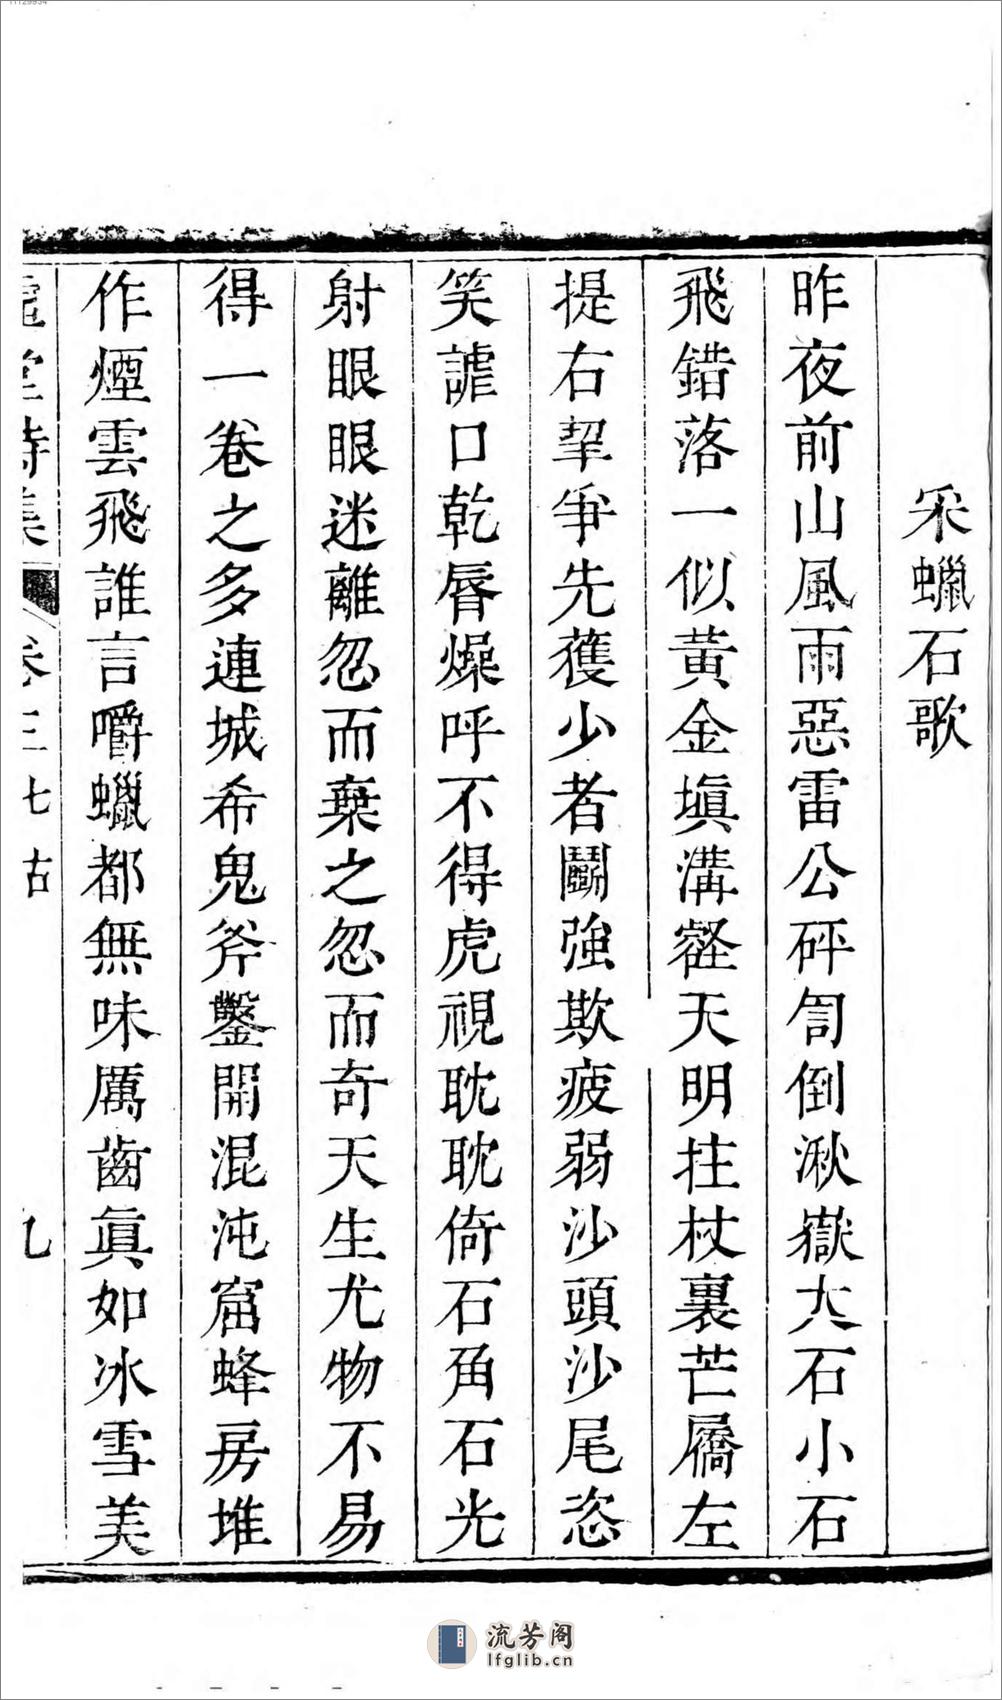 采蠟石歌
昨夜前山風雨惡雷公砰訇倒湫嶽大石小石
飛錯落一似黃金塡溝壑天明拄杖裏芒屩左
提右挈爭先獲少者鬬強欺疲弱沙頭沙尾恣
笑謔口乾唇燥呼不得虎視耽耽倚石角石光
射眼眼迷離忽而棄之忽而奇天生尤物不易
得一卷之多連城希鬼斧鑿開混沌窟蜂房堆
作煙雲飛誰言嚼蠟都無味厲齒眞如冰雪美
堂詩集
卷三七古
九
流芳阁
lfglib.cn